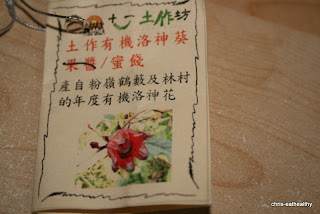 土作坊
土作有機洛神葵
果醬/蜜餞
產自粉嶺鶴藪及林村
的年度有機洛神花
chris-eathealthy